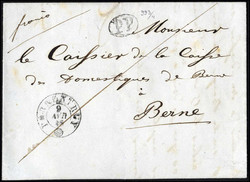 franco
PP
Monsieur
le Caissier de la Caisse
des Domestiques de Berne
Berne
PORRENTRUY
9